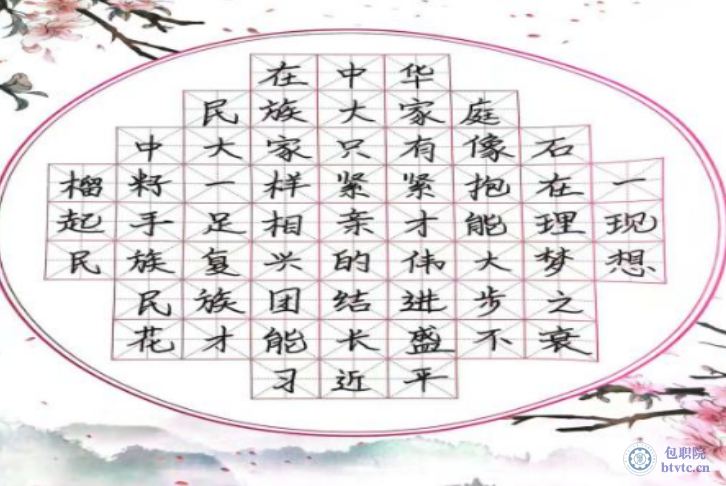 在中华
民族大家庭
中大家只有像石
榴籽一样紧紧抱在一
起手足相亲才能理现
民族复兴的伟大梦想
民族团结进步之
花才能长盛不衰
习近平
包职院
btvtc.cn